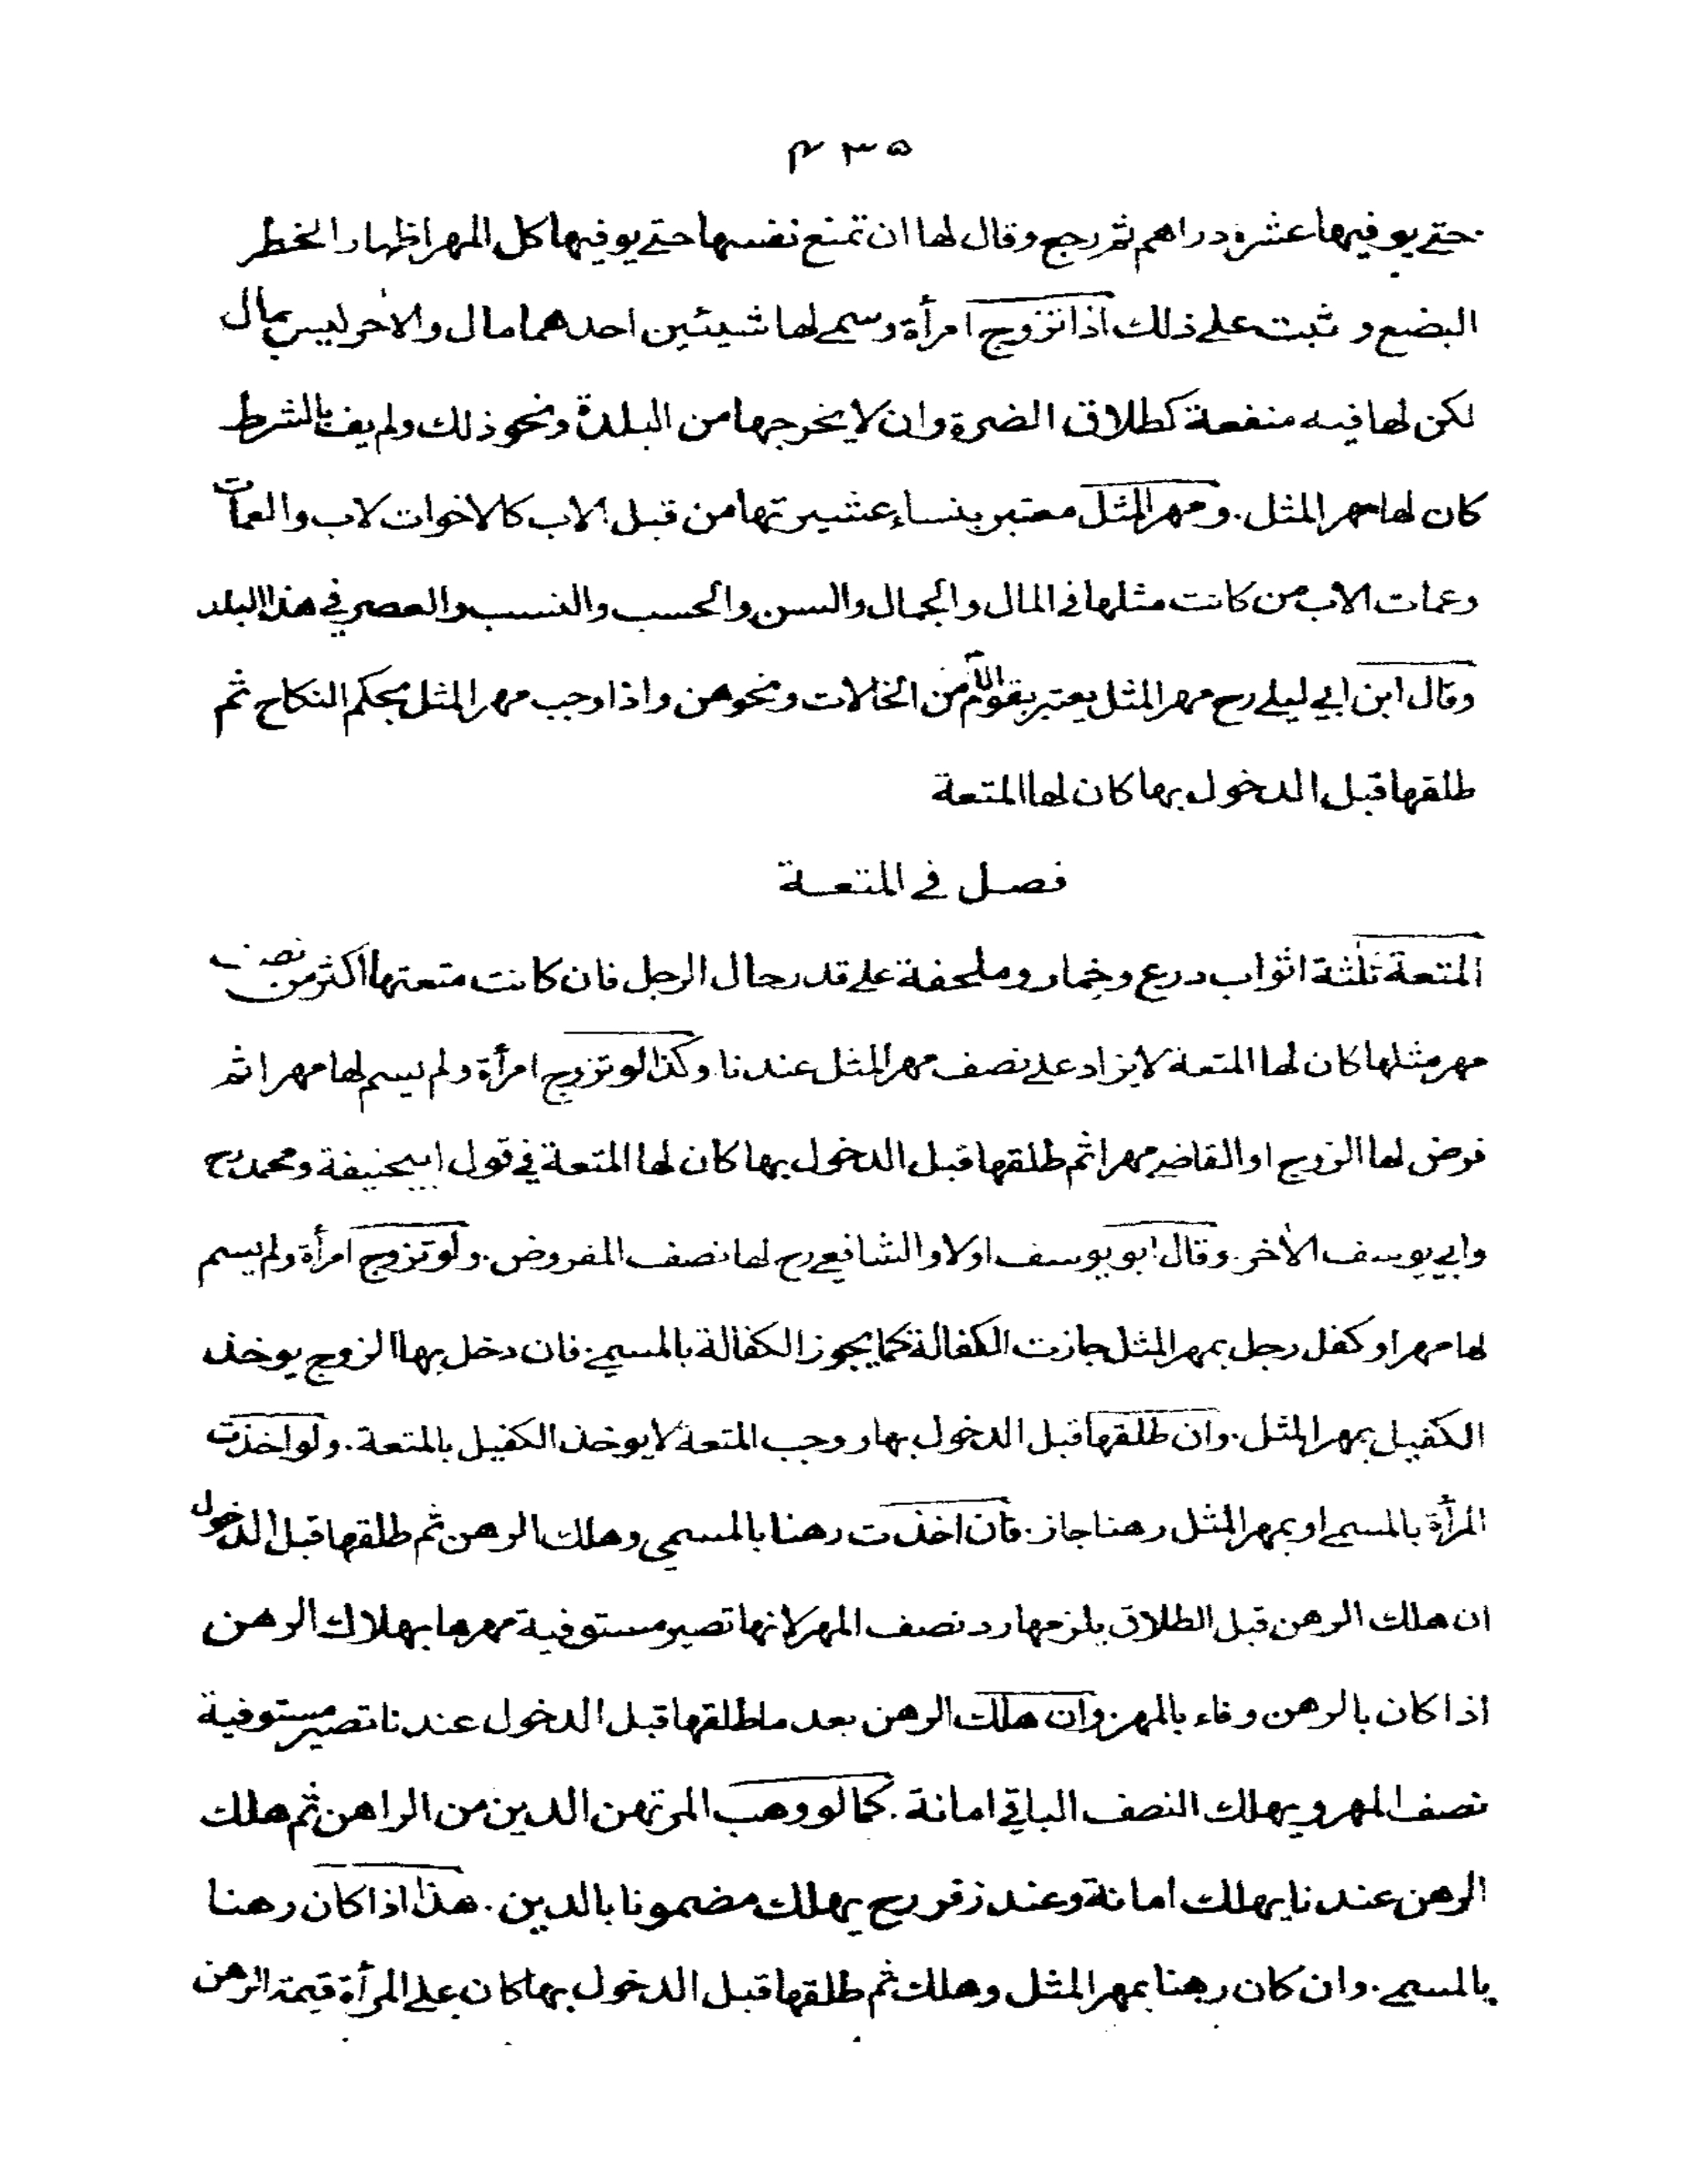 ۴۳۵
حتے يوفيها عشرة دراهم ثم رجع وقال لها ان تمنع نفسها حتے يوفيها كل المهر اظهارا لخطر
البضع و ثبت علے ذلك اذا تزوج امرأة وسمے لها شيئين احدهما مال والاخر ليس بمال
لكن لها فيه منفعة كطلاق الضرة وان لا يخرجها من البلدة ونحو ذلك ولم يف بالشرط
كان لها مهر المثل . ومهر المثل معتبر بنساء عشيرتها من قبل الاب كالاخوات لاب والعمات
وعمات الاب من كانت مثلها فى المال والجمال والسن والحسب والنسب والعصر في هذا البلد
وقال ابن ابي ليلے رح مهر المثل يعتبر بقوم الام من الخالات ونحوهن واذا وجب مهر المثل بحكم النكاح ثم
طلقها قبل الدخول بها كان لها المتعة
فصل في المتعة
المتعة ثلثة اثواب درع وخمار وملحفة علے قدر حال الرجل فان كانت متعتها اكثر من نصف
مهر مثلها كان لها المتعة لا يزاد علے نصف مهر المثل عندنا وكذا لو تزوج امرأة ولم يسم لها مهرا ثم
فرض لها الزوج او القاضے مهرا ثم طلقها قبل الدخول بها كان لها المتعة في قول ابيحنيفة ومحمد رح
وابي يوسف الاخر . وقال ابو يوسف اولا والشافعے رح لها نصف المفروض . ولو تزوج امرأة ولم يسم
لها مهرا و كفل رجل بمهر المثل جازت الكفالة كما يجوز الكفالة بالمسمے . فان دخل بها الزوج يوخذ
الكفيل بمهر المثل . وان طلقها قبل الدخول بها ووجب المتعة لا يوخذ الكفيل بالمتعة . ولو اخذت
المرأة بالمسمے او بمهر المثل رهنا جاز . فان اخذت رهنا بالمسمى وهلك الرهن ثم طلقها قبل الدخول
ان هلك الرهن قبل الطلاق يلزمها رد نصف المهر لانها تصير مستوفية مهرها بهلاك الرهن
اذا كان بالرهن وفاء بالمهر . وان هلك الرهن بعد ما طلقها قبل الدخول عندنا تصير مستوفية
نصف المهر ويهلك النصف الباقي امانة . كما لو وهب المرتهن الدين من الراهن ثم هلك
الرهن عندنا يهلك امانة وعند زفر رح يهلك مضمونا بالدين . هذا اذا كان رهنا
بالمسمے . وان كان رهنا بمهر المثل وهلك ثم طلقها قبل الدخول بها كان علے المرأة قيمة الرهن